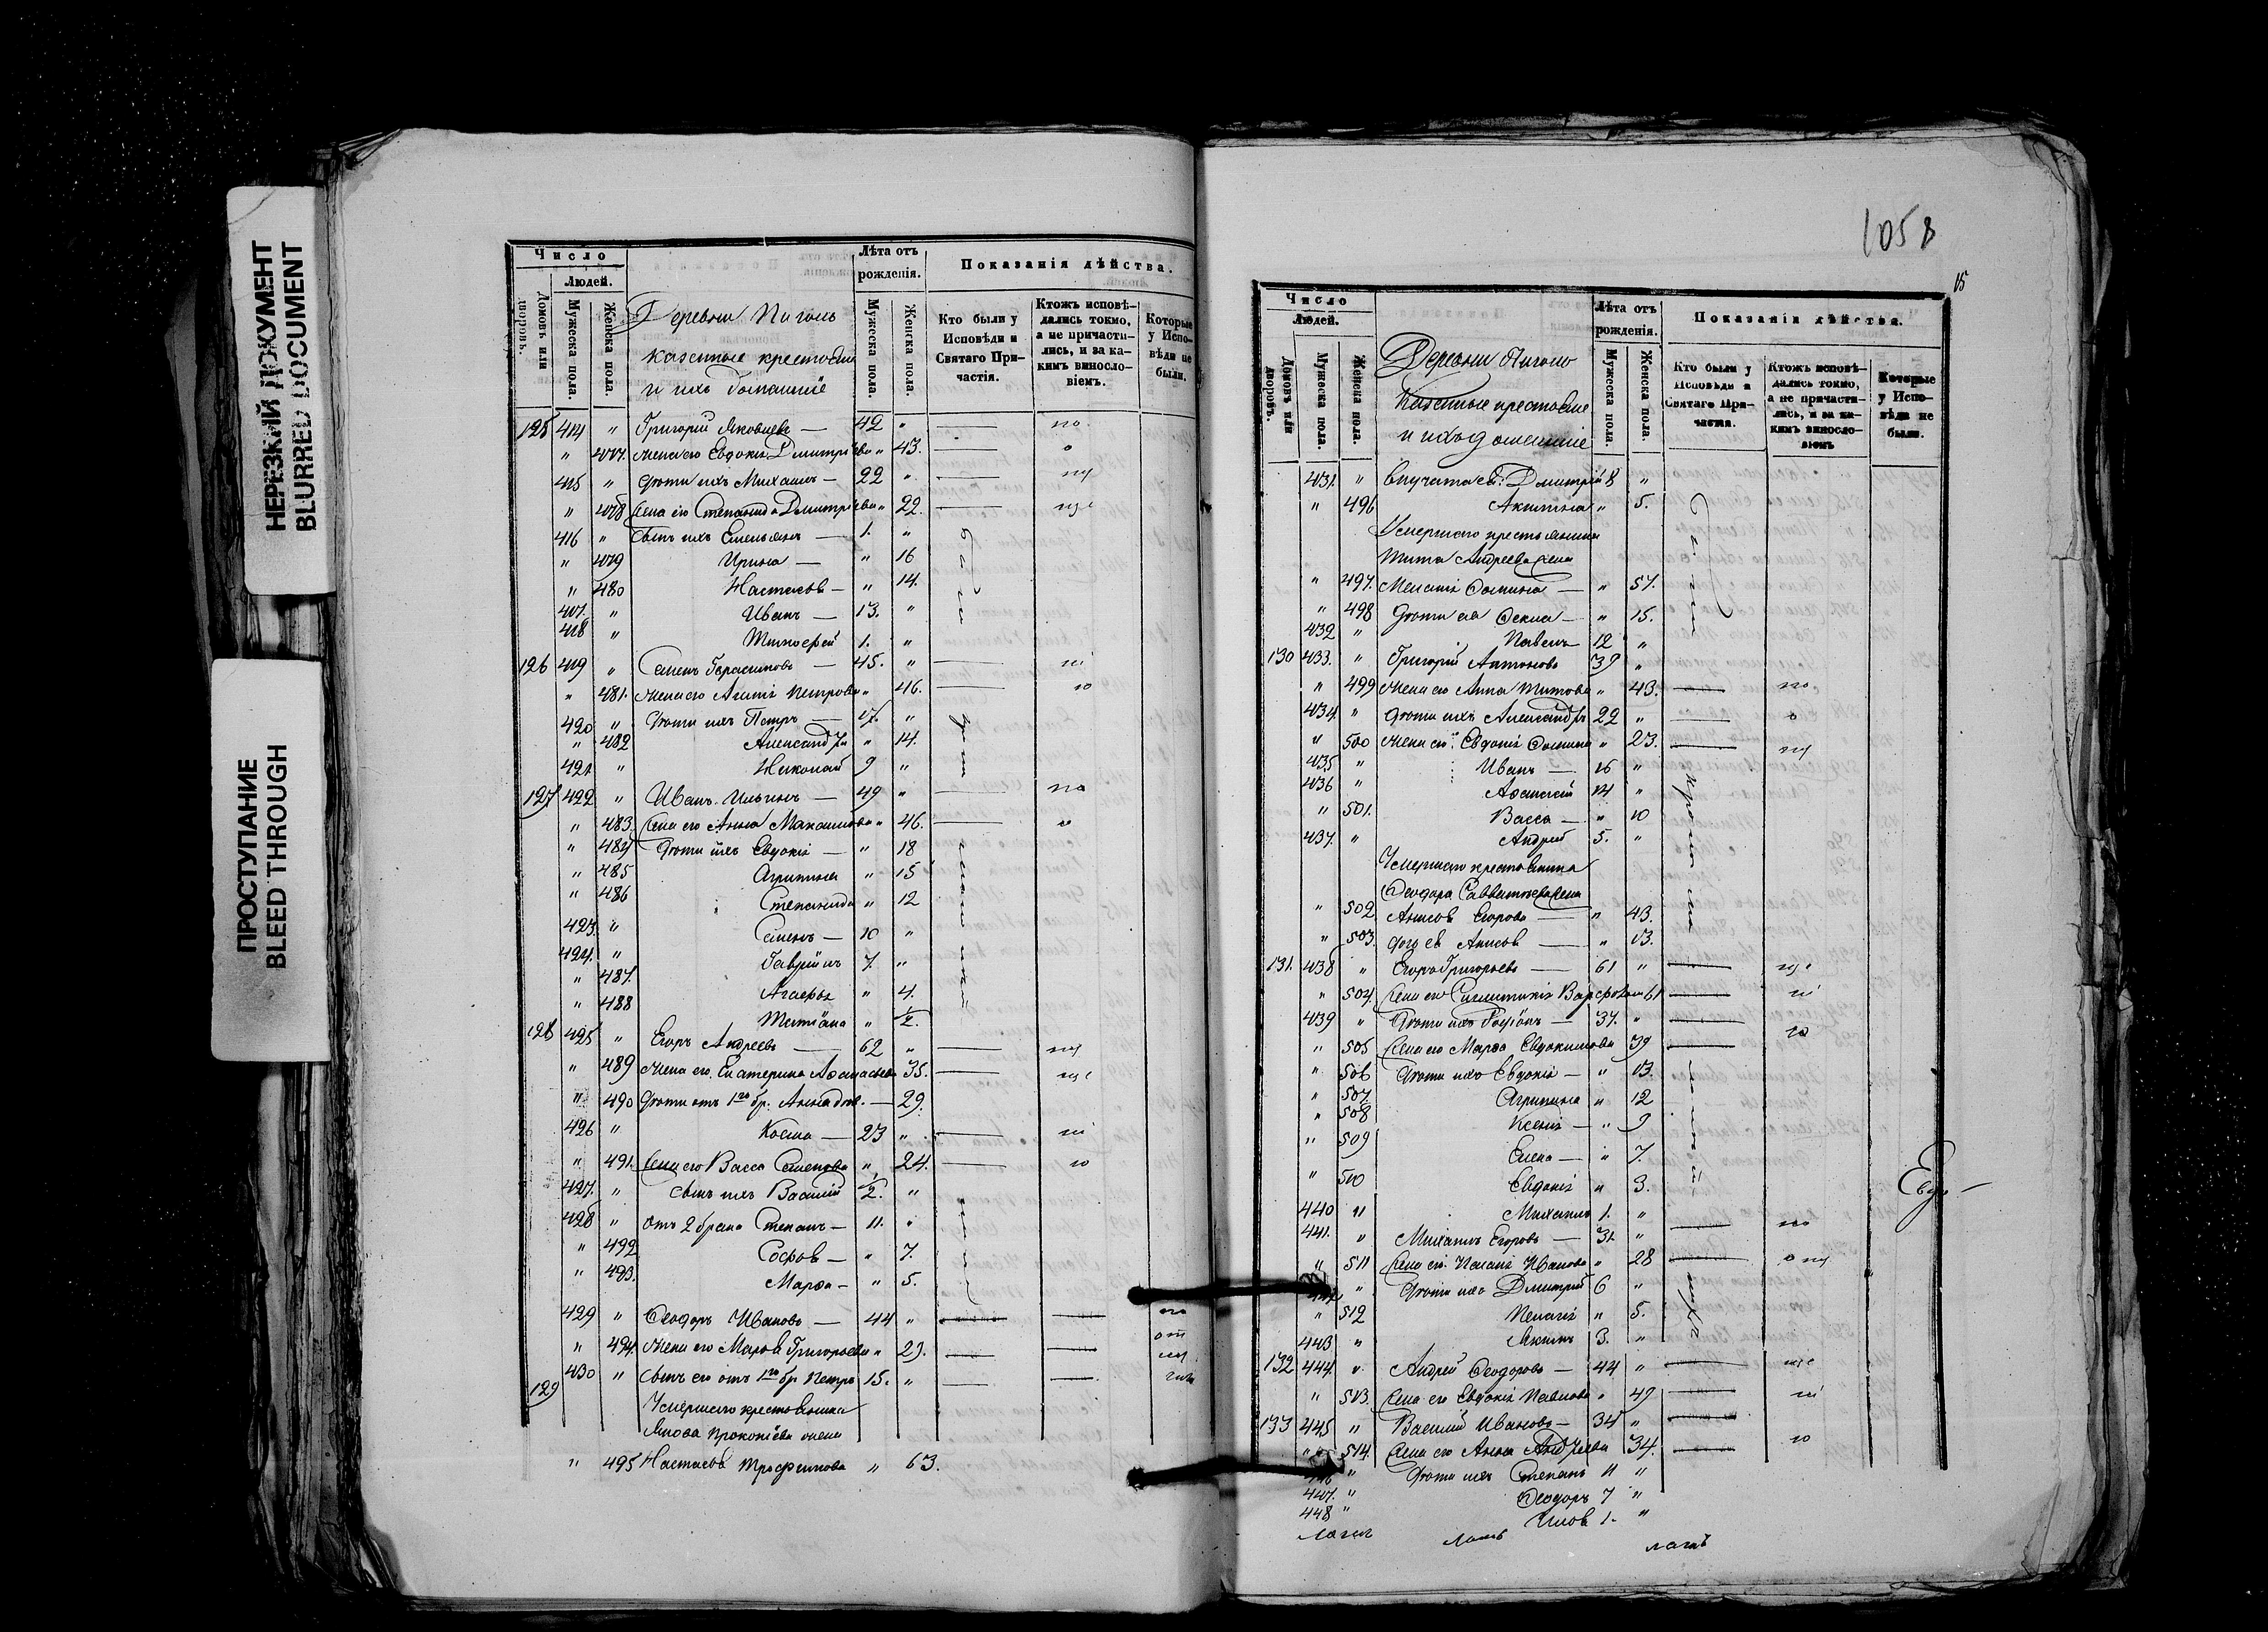 НЕРЕЗКИЙ ДОКУМЕНТ
BLURRED DOCUMENT
ПРОСТУПАНИЕ
BLEED THROUGH
Число
Людей.
Домовъ или дворовъ.
Мужеска пола.
Женска пола.
Деревни
казенные крестьяне
и ихъ домашніе
Лѣта отъ рожденія.
Мужеска пола.
Женска пола.
Показанія дѣйства.
Кто были у Исповѣди и Святаго Причастія.
Ктожъ исповѣдались токмо, а не причастились, и за какимъ винословіемъ.
Которые у Исповѣди не были.
125 414 " Григорій Яковлевъ — 42 "
" 477. жена его Евдокія Дмитріева " 43.
415 " Дѣти ихъ Михаилъ — 22 "
" 478 Жена его Степанида Дмитріева " 22.
416 " Сынъ ихъ Емельянъ — 1. "
" 479 Ирина — " 16
" 480 Настасья — " 14.
417. " Иванъ — 13. "
418 " Тимофей 1. "
126 419 " Семенъ Герасимовъ — 45. "
" 481. жена его Агапія Петрова " 46.
420 " Дѣти ихъ Петръ — 17. "
" 482 Александра " 14.
421 " Николай 9 "
127 422 " Иванъ Ильинъ — 49 "
" 483. Жена его Анна Максимова " 46.
" 484 Дѣти ихъ Евдокія — " 18
" 485 Агрипина " 15
" 486 Степанида " 12
423. " Семенъ — 10 "
424. " Гавріилъ 7. "
" 487. Агафья " 4.
" 488 Татіана " 1/2.
128 425 " Егоръ Андреевъ — 62 "
" 489 жена его Екатерина Афанасьева 35.
" 490 Дѣти отъ 1го бр. Анна — 29.
426 " Косма — 23 "
" 491. Жена его Васса Семенова " 24.
427. " сынъ ихъ Василій 1/2. "
428 " отъ 2 брака Степанъ — 11. "
" 492 Софья — " 7.
" 493. Марѳа — " 5.
429 " Ѳеодоръ Ивановъ — 44 "
" 494. жена его Марья Григорьева " 29.
430 " сынъ его отъ 1го бр Петръ 15. "
129 Умершаго крестьянина
Якова Прокопіева жена
" 495 Настасья Трофимова " 63.
1058
15
Число
Людей.
Домовъ или дворовъ.
Мужеска пола.
Женска пола.
Деревни
Казенные крестьяне
и ихъ домашніе
Лѣта отъ рожденія.
Мужеска пола.
Женска пола.
Показанія дѣйства.
Кто были у Исповѣди и Святаго Причастія.
Ктожъ исповѣдались токмо, а не причастились, и за какимъ винословіемъ
Которые у Исповѣди не были.
431. " Внучата ея: Дмитрій 8 "
" 496 Акилина " 5.
Умершаго крестьянина
Тита Андреева жена
" 497. Меланія Фомина — " 57.
" 498 Дѣти ея Ѳекла — " 15.
432 " Павелъ 12 "
130 433. " Григорій Антоновъ 39 "
" 499 жена его Анна Титова " 43.
434. " Дѣти ихъ Александръ 22 "
" 500 жена его Евдокія Фомина " 23.
435 " Иванъ — 16 "
436 " Аѳанасій 14 "
" 501. Васса — " 10
437. " Андрей 5. "
Умершаго крестьянина
Ѳеодора Савватѣева жена
" 502. Анисья Егорова — " 43.
" 503. дочь ея Анисья — " 13.
131. 438 " Егоръ Григорьевъ — 61 "
" 504. Жена его Синклитикія 61
439 " Дѣти ихъ Родіонъ — 37. "
" 505 Жена его Марѳа Евдокимова 39
" 506 Дѣти ихъ Евдокія — " 13.
" 507. Агрипина " 12
" 508 Ксенія — " 9
" 509 Елена — " 7.
" 510 Евдокія " 3.
440 " Михаилъ 1. "
441. " Михаилъ Егоровъ — 31. "
" 511 Жена его Пелагія Иванова " 28
" Дѣти ихъ Дмитрій 6 "
" 512 Пелагія " 5.
443 " Акимъ 3. "
132 444. " Андрей Ѳеодоровъ — 44 "
" 513. Жена его Евдокія Павлова " 49
133 445 " Василій Ивановъ — 34 "
" 514. Жена его Анна Андреева 34.
446 " Дѣти ихъ Степанъ 11 "
447. " Ѳеодоръ 7 "
448 " Илья 1. "
Евдо-